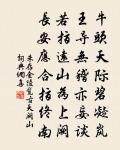 牛頭天際碧凝嵐
王導無稽亦妄談
若指遠山為上闕
長安應合指終南
朱存金陵覽古天闕山
詞典網集